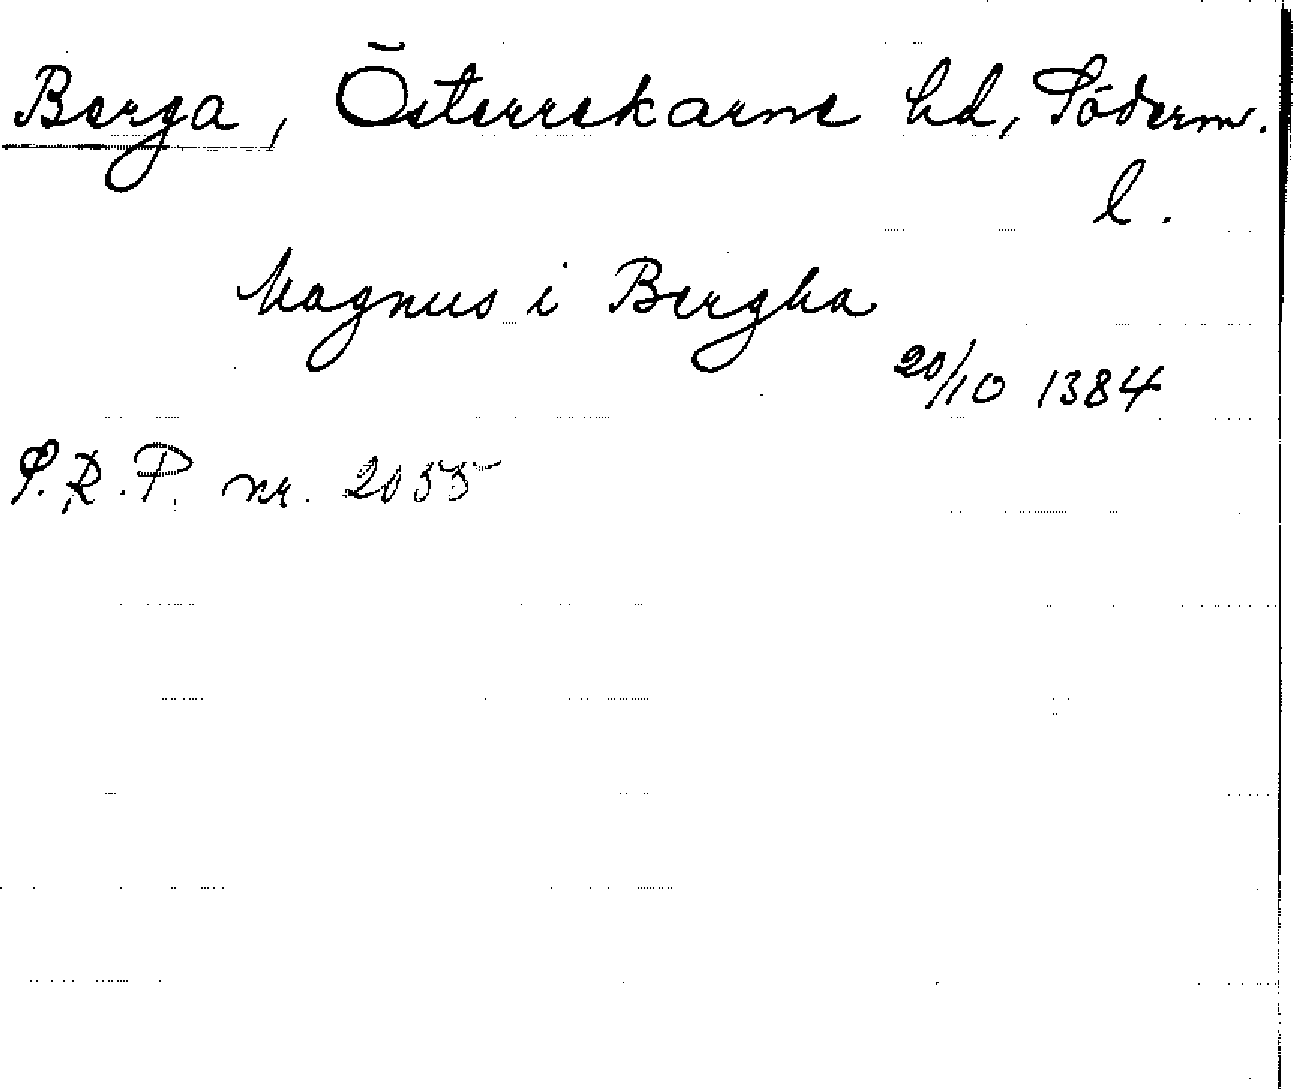 Berga, Österrekarne hd, Söderm.
l.
Magnus i Bergha
20/10 1384
S.R.P. nr. 2055